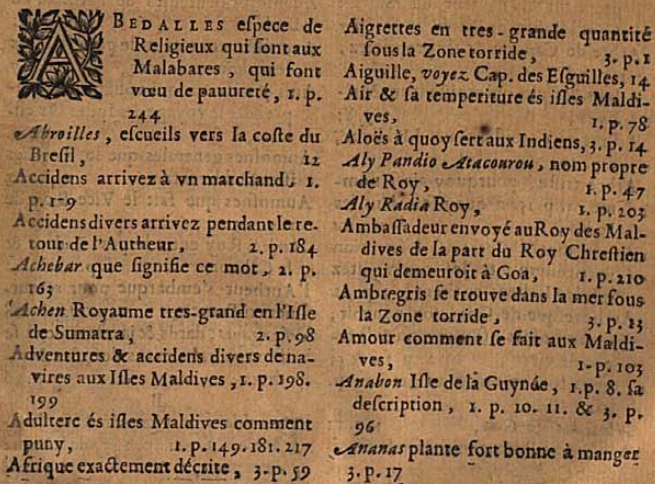 ABEDALLES eſpece de
Religieux qui ſont aux
Malabares, qui font
vœu de pauureté, 1. p.
244
Abroilles, eſcueils vers la coſte du
Breſil, 12
Accidens arrivez à vn marchand, 1.
p. 1-9
Accidens divers arrivez pendant le re-
tour de l'Autheur, 2. p. 184
Achebar que ſignifie ce mot, 2. p.
163
Achen Royaume tres-grand en l'Iſle
de Sumatra, 2. p. 98
Adventures & accidens divers de na-
vires aux Iſles Maldives, 1. p. 198.
199
Adultere és iſles Maldives comment
puny, 1. p. 149. 181. 217
Afrique exactement décrite, 3. p. 59
Aigrettes en tres-grande quantité
ſous la Zone torride, 3. p. 1
Aiguille, voyez Cap. des Eſguilles, 14
Air & ſa temperiture és iſles Maldi-
ves, 1. p. 78
Aloës à quoy ſert aux Indiens, 3. p. 14
Aly Pandio Atacourou, nom propre
de Roy, 1. p. 47
Aly Radia Roy, 1. p. 203
Ambaſſadeur envoyé au Roy des Mal-
dives de la part du Roy Chreſtien
qui demeuroit à Goa, 1. p. 210
Ambregris ſe trouve dans la mer ſous
la Zone torride, 3. p. 13
Amour comment ſe fait aux Maldi-
ves, 1-p. 103
Anabon Iſle de la Guynée, 1. p. 8. ſa
deſcription, 1. p. 10. 11. & 3. p.
96
Ananas plante fort bonne à manger
3. p. 17